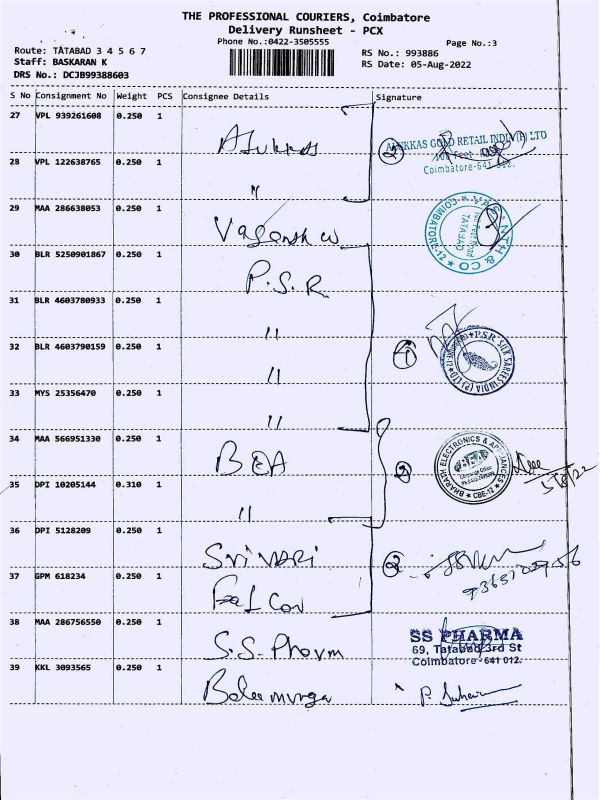 THE PROFESSIONAL COURIERS, Coimbatore
Delivery Runsheet - PCX
Phone No.:0422-3505555
Page No.:3
Route: TATABAD 3 4 5 6 7
RS No.: 993886
Staff: BASKARAN K
RS Date: 05-Aug-2022
DRS No.: DCJB99388603
S No Consignment No Weight PCS Consignee Details Signature
27 VPL 939261608 0.250 1
ALUKKAS GOLD RETAIL INDIA (P) LTD
100 Feet
28 VPL 122638765 0.250 1 "
Coimbatore-641 012.
29 MAA 286638053 0.250 1
VASANTH & CO
100 Feet Road
TATABAD
COIMBATORE-12
30 BLR 5250901867 0.250 1 P.S.R
31 BLR 4603780933 0.250 1 "
32 BLR 4603790159 0.250 1 "
4
PSR SILK SAREES INDIA (P) LTD
33 MYS 25356470 0.250 1 "
34 MAA 566951330 0.250 1 BEA
BHARATH ELECTRONICS & APPLIANCES
CBE-12
5/8/22
35 DPI 10205144 0.310 1 "
2
36 DPI 5128209 0.250 1 Srivari
2
37 GPM 618234 0.250 1 Falcon
38 MAA 286756550 0.250 1 S.S. Pharm
SS PHARMA
69, Tatabad 3rd St
Coimbatore-641 012.
39 KKL 3093565 0.250 1 Balamuruga